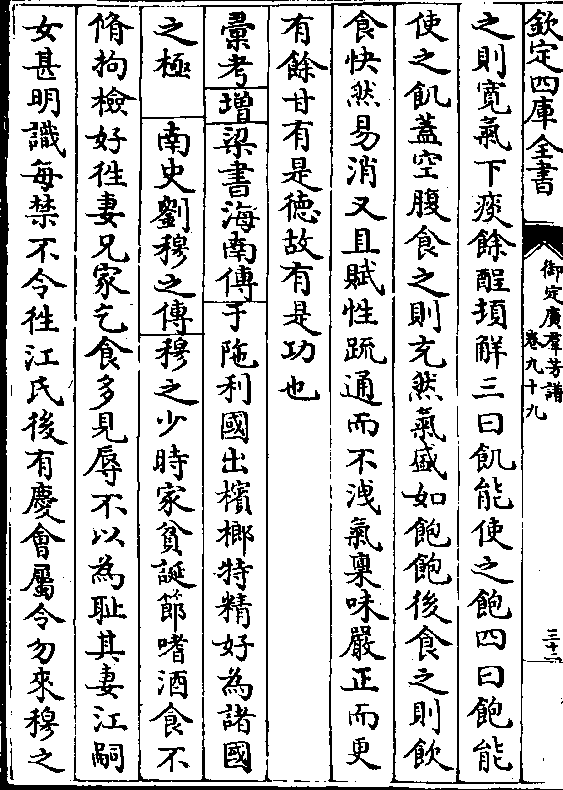 欽定四庫全書
御定廣羣芳譜
卷九十九
三十三
之則寛氣下痰餘酲頓解三曰飢能使之飽四曰飽能
使之飢蓋空腹食之則充然氣盛如飽飽後食之則飲
食快然易消又且賦性疏通而不洩氣稟味嚴正而更
有餘甘有是德故有是功也
彙考增梁書海南傳于陁利國出檳榔特精好為諸國
之極　南史劉穆之傳穆之少時家貧誕節嗜酒食不
脩拘檢好徃妻兄家乞食多見辱不以為耻其妻江嗣
女甚明識每禁不令徃江氏後有慶會屬令勿來穆之